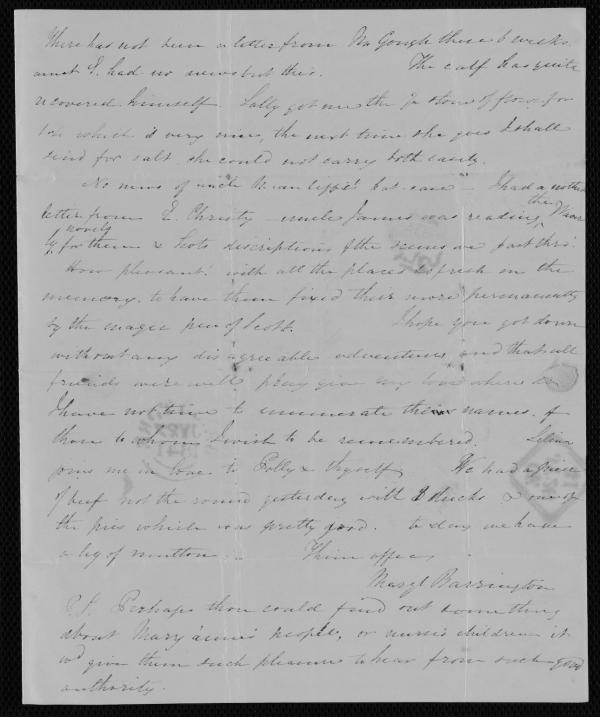 There has not been a letter from Gough these 6 weeks
I had no news but this. The calf has quite
recovered himself. Sally got me the stone of flour for
which is very nice, the next time she goes I shall
send for salt, she could not carry both easily.
No news of uncle case - I had another
letter from E. Christy - uncle James was reading the
novels
for them & Scots descriptions of the scenes we past thro'.
How pleasant! with all the places so fresh on the
memory, to have them fixed their more permanently
by the magic pen of Scott. I hope you got down
without any disagreeable adventures and that all
friends were well pray give my love where
I have not time to enumerate their names of
those to whom I wish to be remembered.
joins me in love to Polly & thyself We had a piece
of beef not the round yesterday with 3 ducks & one of
the pies which was pretty good. to day we have
a leg of mutton. -
Thine affec
Mary Barrington
P.S. Perhaps thou could find out something
about Mary anne's people, or nurse's children it
wd give them such pleasure to hear from such good
authority.